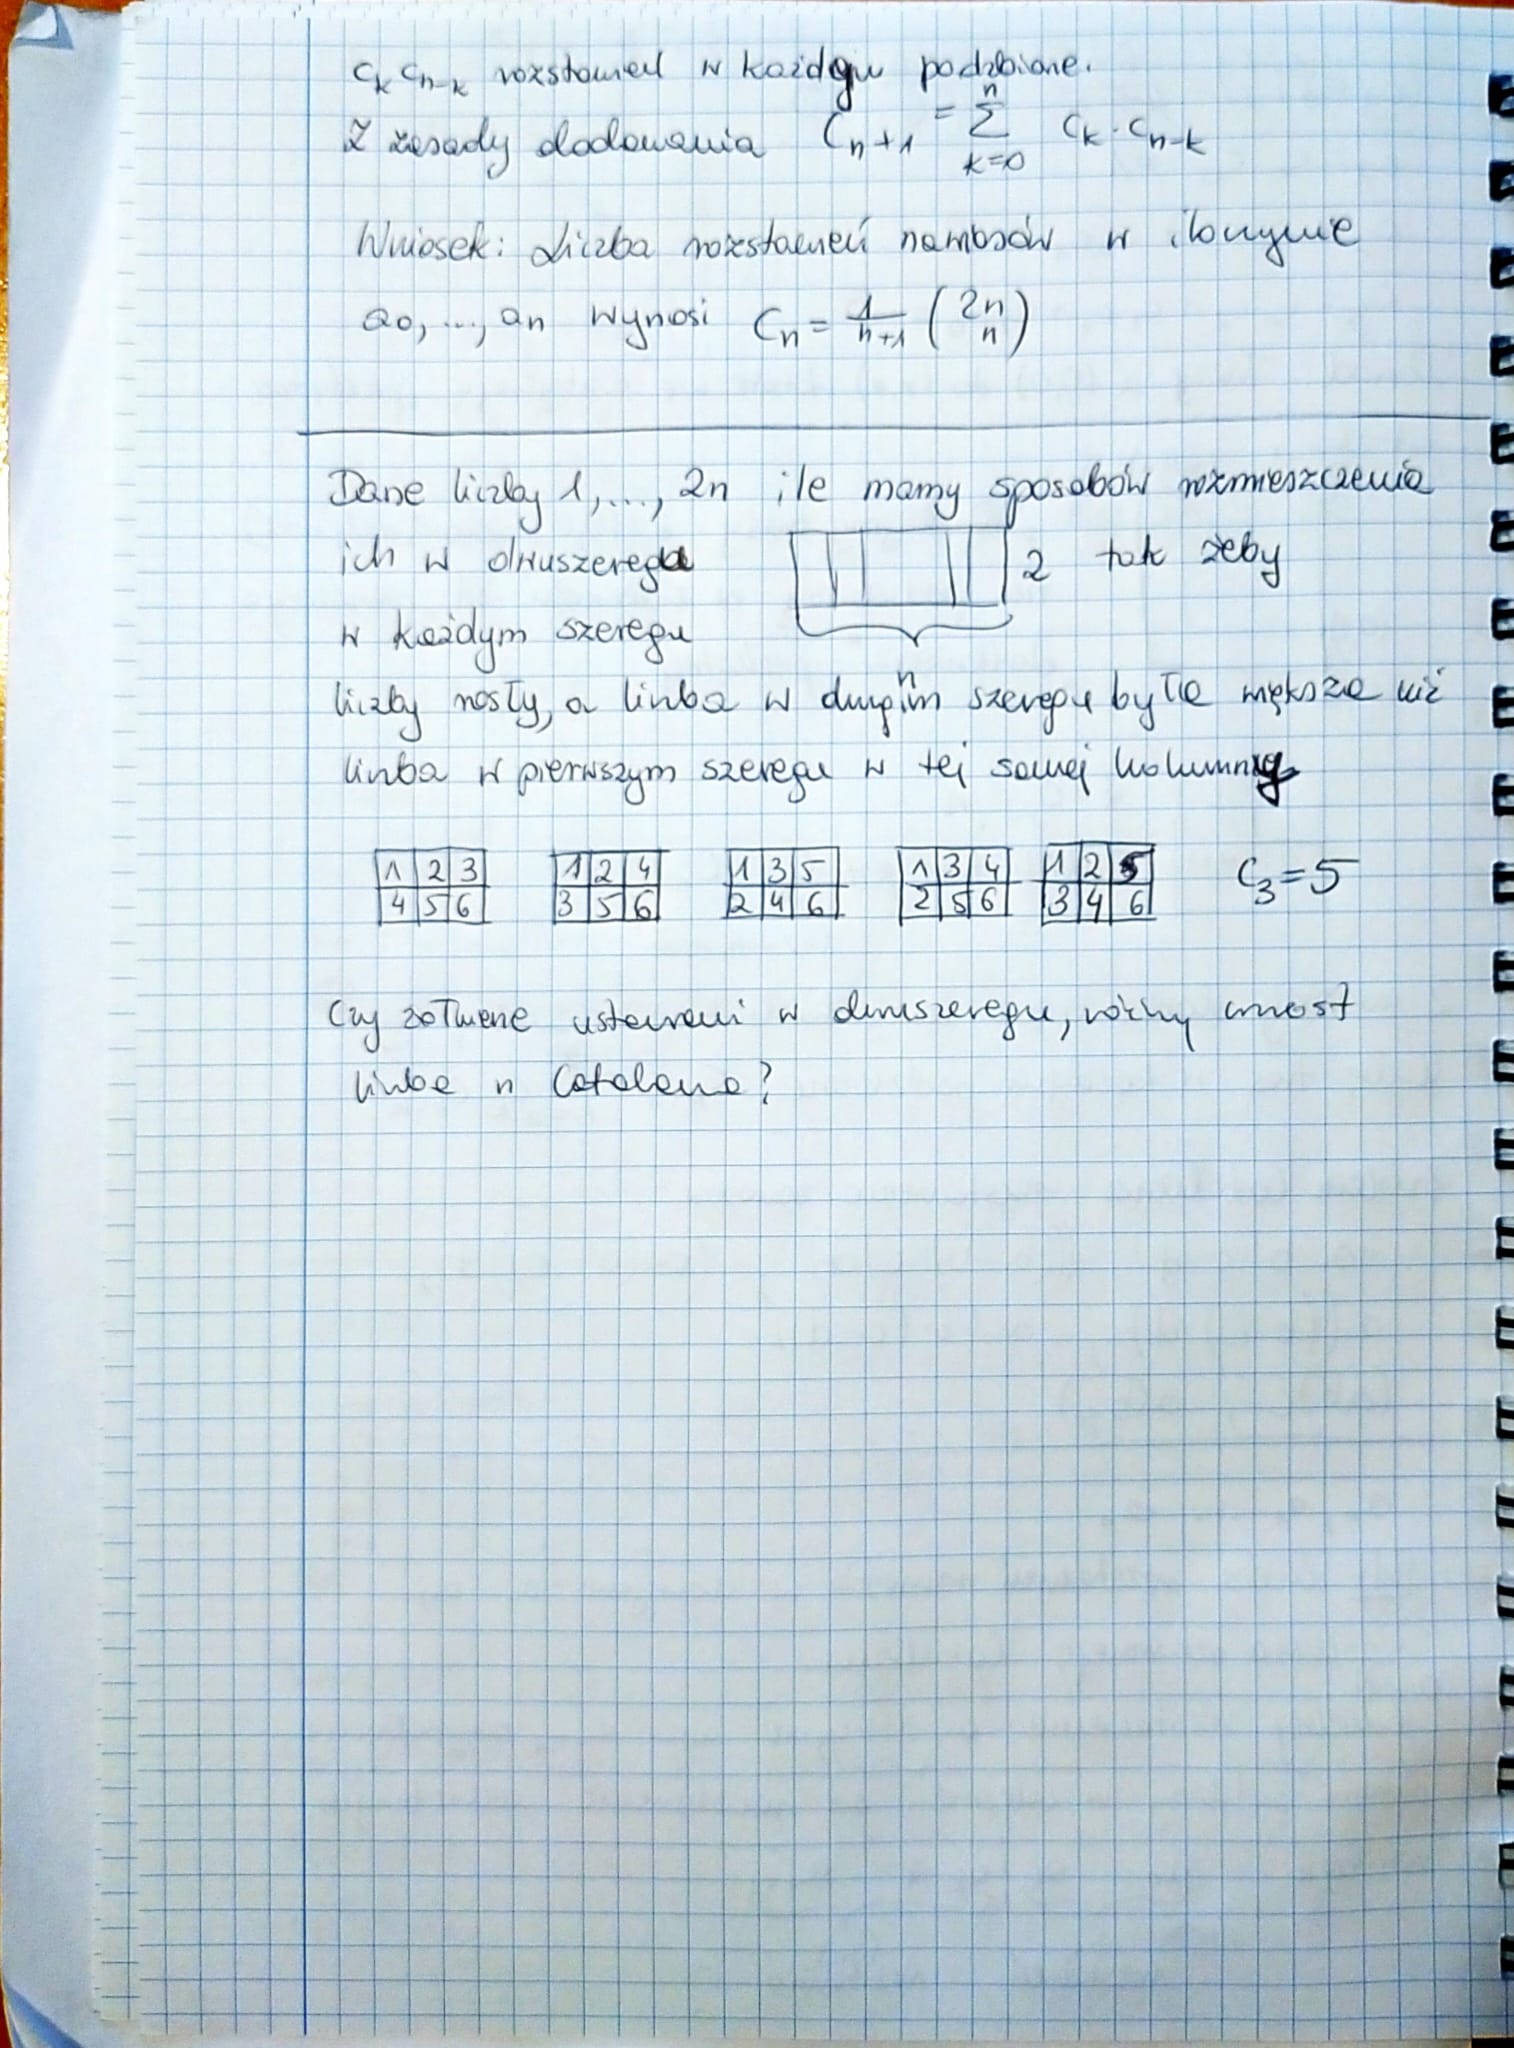 C_k C_{n-k} rozstawień w każdym podzbiorze.
Z zasady dodawania C_{n+1} = \sum_{k=0}^{n} C_k \cdot C_{n-k}
Wniosek: Liczba rozstawień nawiasów w iloczynie
a_0, ..., a_n wynosi C_n = \frac{1}{n+1} \binom{2n}{n}
Dane liczby 1, ..., 2n ile mamy sposobów rozmieszczenia
ich w dwuszeregu 2 tak żeby
w każdym szeregu
n
liczby rosły, a liczba w drugim szeregu była większa niż
liczba w pierwszym szeregu w tej samej kolumnie
1 2 3 1 2 4 1 3 5 1 3 4 1 2 5 C_3 = 5
4 5 6 3 5 6 2 4 6 2 5 6 3 4 6
Czy ustawień w dwuszeregu, różny wzrost
liczba n Catalana?